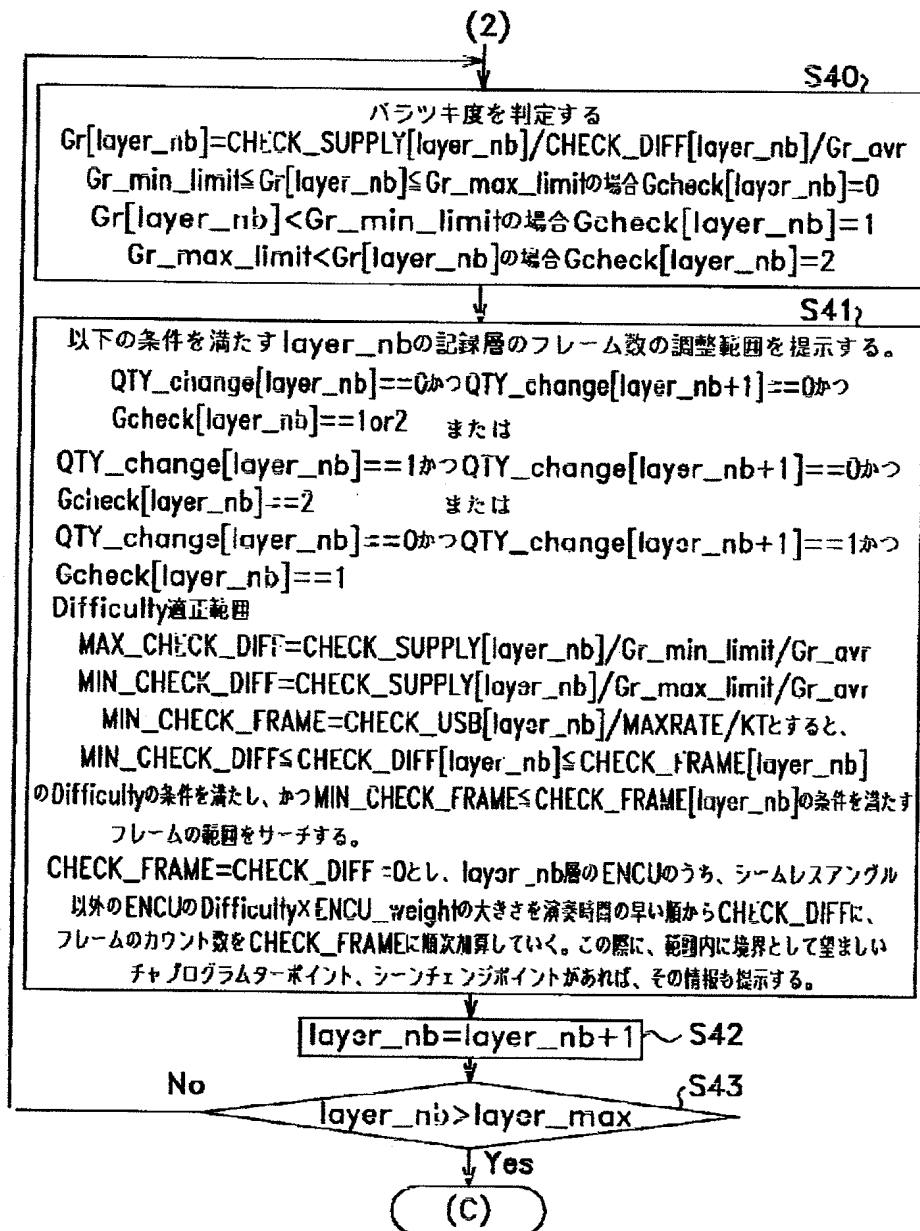 (2)
S40
バラツキ度を判定する
Gr[layer_nb]=CHECK_SUPPLY[layer_nb]/CHECK_DIFF[layer_nb]/Gr_avr
Gr_min_limit≦Gr[layer_nb]≦Gr_max_limitの場合Gcheck[layer_nb]=0
Gr[layer_nb]<Gr_min_limitの場合Gcheck[layer_nb]=1
Gr_max_limit<Gr[layer_nb]の場合Gcheck[layer_nb]=2
S41
以下の条件を満たすlayer_nbの記録層のフレーム数の調整範囲を提示する。
QTY_change[layer_nb]==0かつQTY_change[layer_nb+1]==0かつ
Gcheck[layer_nb]==1or2 または
QTY_change[layer_nb]==1かつQTY_change[layer_nb+1]==0かつ
Gcheck[layer_nb]==2 または
QTY_change[layer_nb]==0かつQTY_change[layer_nb+1]==1かつ
Gcheck[layer_nb]==1
Difficulty適正範囲
MAX_CHECK_DIFF=CHECK_SUPPLY[layer_nb]/Gr_min_limit/Gr_avr
MIN_CHECK_DIFF=CHECK_SUPPLY[layer_nb]/Gr_max_limit/Gr_avr
MIN_CHECK_FRAME=CHECK_USB[layer_nb]/MAXRATE/KTとすると、
MIN_CHECK_DIFF≦CHECK_DIFF[layer_nb]≦CHECK_FRAME[layer_nb]
のDifficultyの条件を満たし、かつMIN_CHECK_FRAME≦CHECK_FRAME[layer_nb]の条件を満たす
フレームの範囲をサーチする。
CHECK_FRAME=CHECK_DIFF=0とし、layer_nb層のENCUのうち、シームレスアングル
以外のENCUのDifficulty×ENCU_weightの大きさを演奏時間の早い順からCHECK_DIFFに、
フレームのカウント数をCHECK_FRAMEに順次加算していく。この際に、範囲内に境界として望ましい
チャプログラムターポイント、シーンチェンジポイントがあれば、その情報も提示する。
layer_nb=layer_nb+1 S42
No S43
layer_nb>layer_max
Yes
(C)